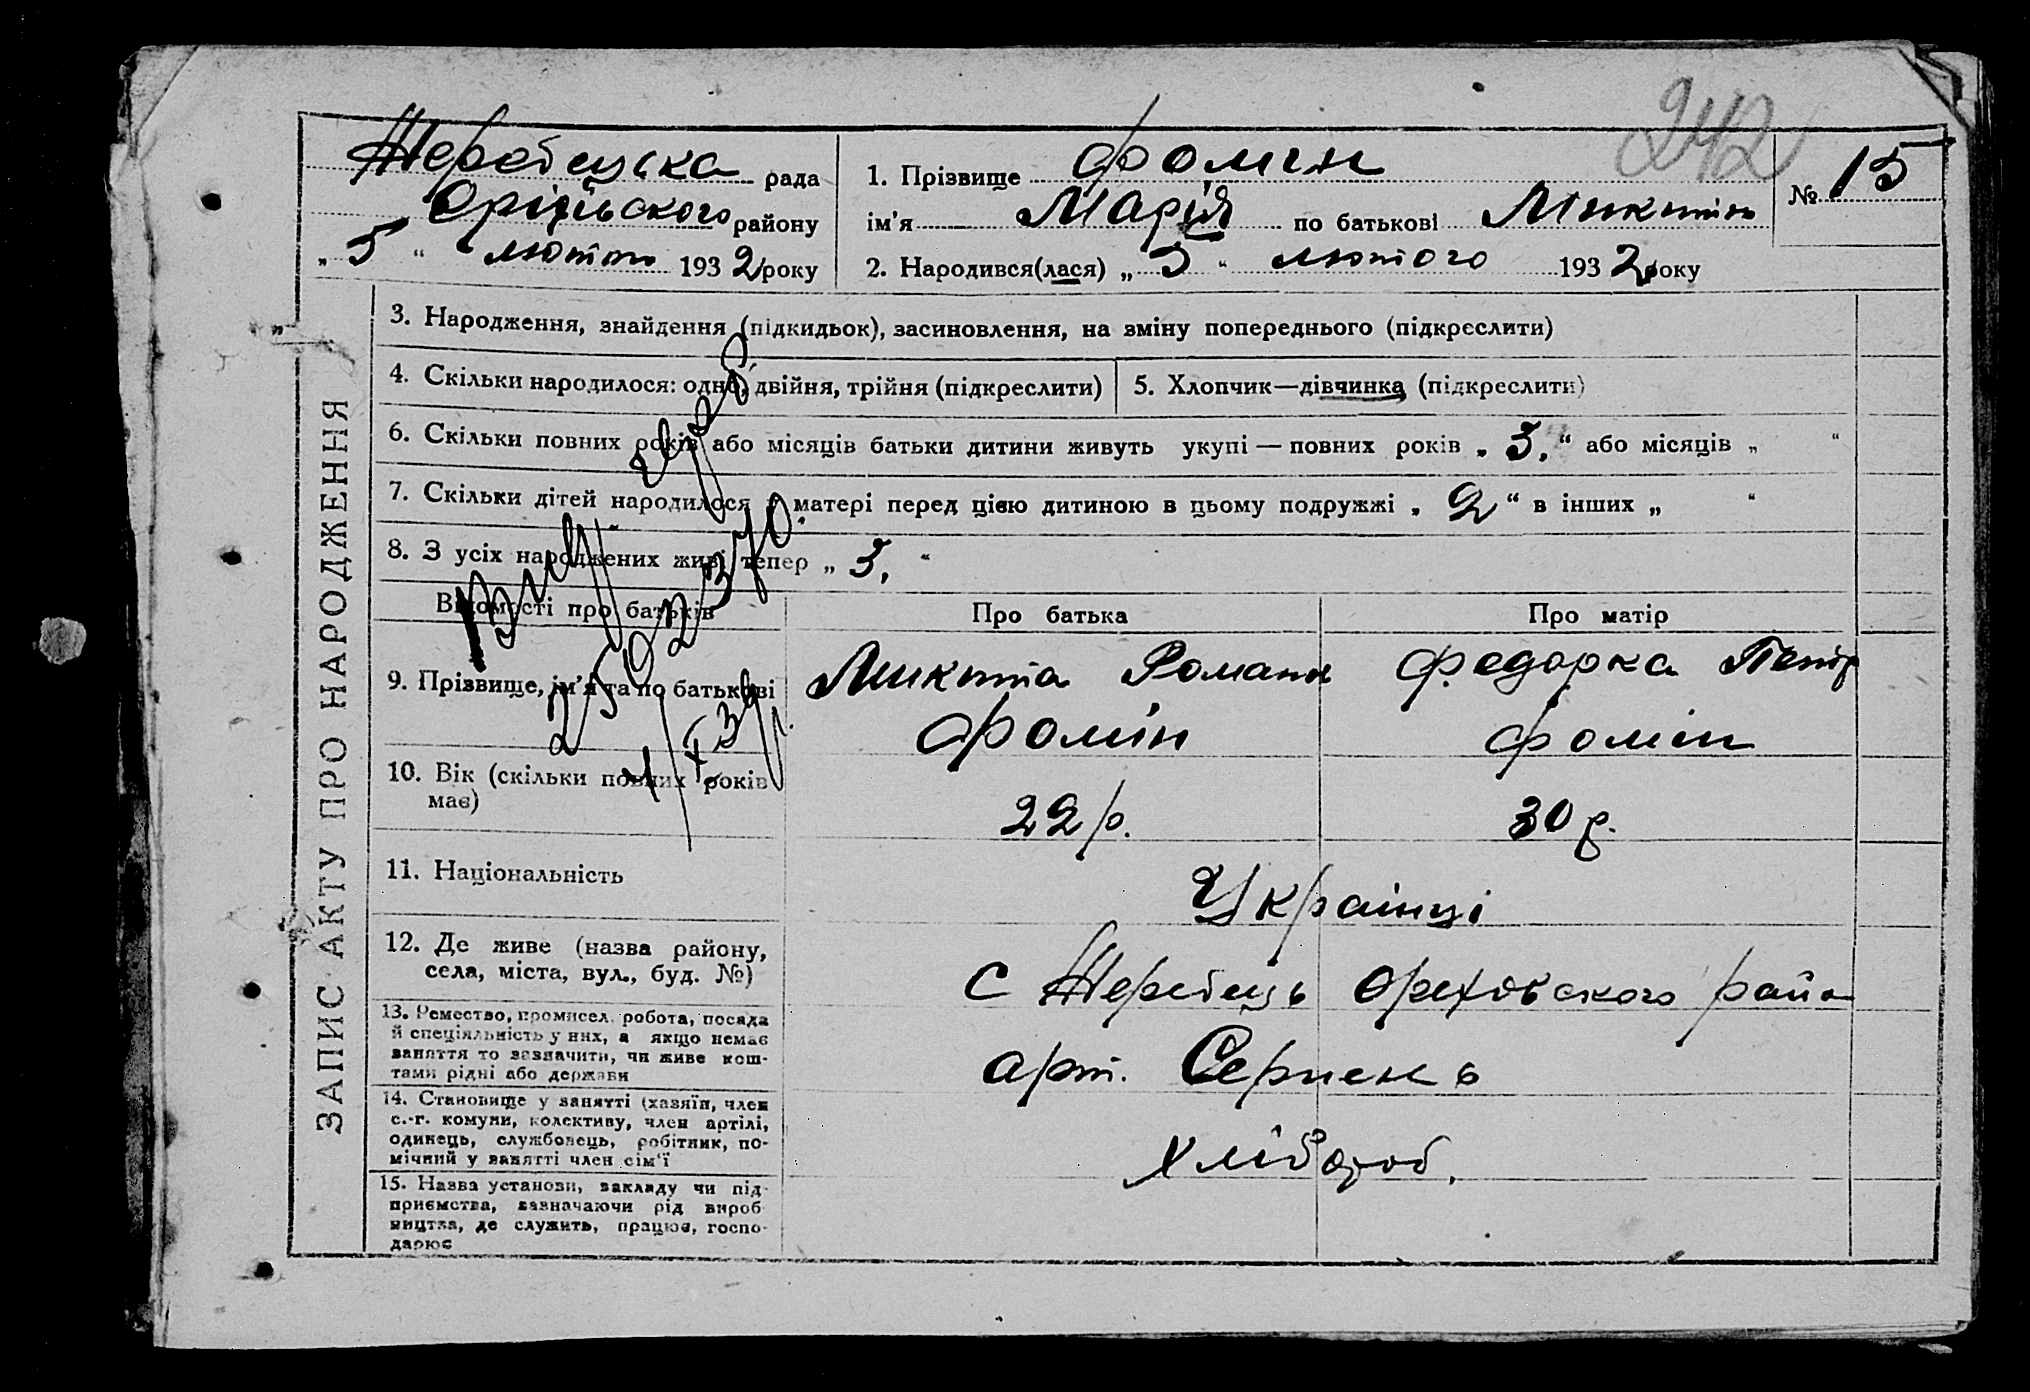 242
Жеребецька рада
Оріхівського району
„5“ лютого 1932 року
1. Прізвище Фомін
ім’я Марія по батькові Микитів
№ 15
2. Народився(лася) „3“ лютого 1932 року
ЗАПИС АКТУ ПРО НАРОДЖЕННЯ
3. Народження, знайдення (підкидьок), засиновлення, на зміну попереднього (підкреслити)
4. Скільки народилося: одно, двійня, трійня (підкреслити)
5. Хлопчик—дівчинка (підкреслити)
6. Скільки повних років або місяців батьки дитини живуть укупі — повних років „3.“ або місяців „ “
7. Скільки дітей народилося у матері перед цією дитиною в цьому подружжі „2“ в інших „ “
8. З усіх народжених живі тепер „3.“
Відомості про батьків
Про батька
Про матір
9. Прізвище, ім’я та по батькові
Микита Роман
Фомін
Федорка Петр
Фомін
10. Вік (скільки повних років
має)
22 р.
30 р.
11. Національність
Українці
12. Де живе (назва району,
села, міста, вул., буд. №)
с Жеребець Ореховского район
13. Ремество, промисел, робота, посада
й спеціяльність у них, а якщо немає
заняття то зазначити, чи живе кош-
тами рідні або держави
арт. Серпень
14. Становище у занятті (хазяїн, член
с.-г. комуни, колективу, член артілі,
одинець, службовець, робітник, по-
мічний у занятті член сім’ї
хлібороб.
15. Назва установи, закладу чи під-
приємства, зазначаючи рід вироб-
ництва, де служить, працює, госпо-
дарює